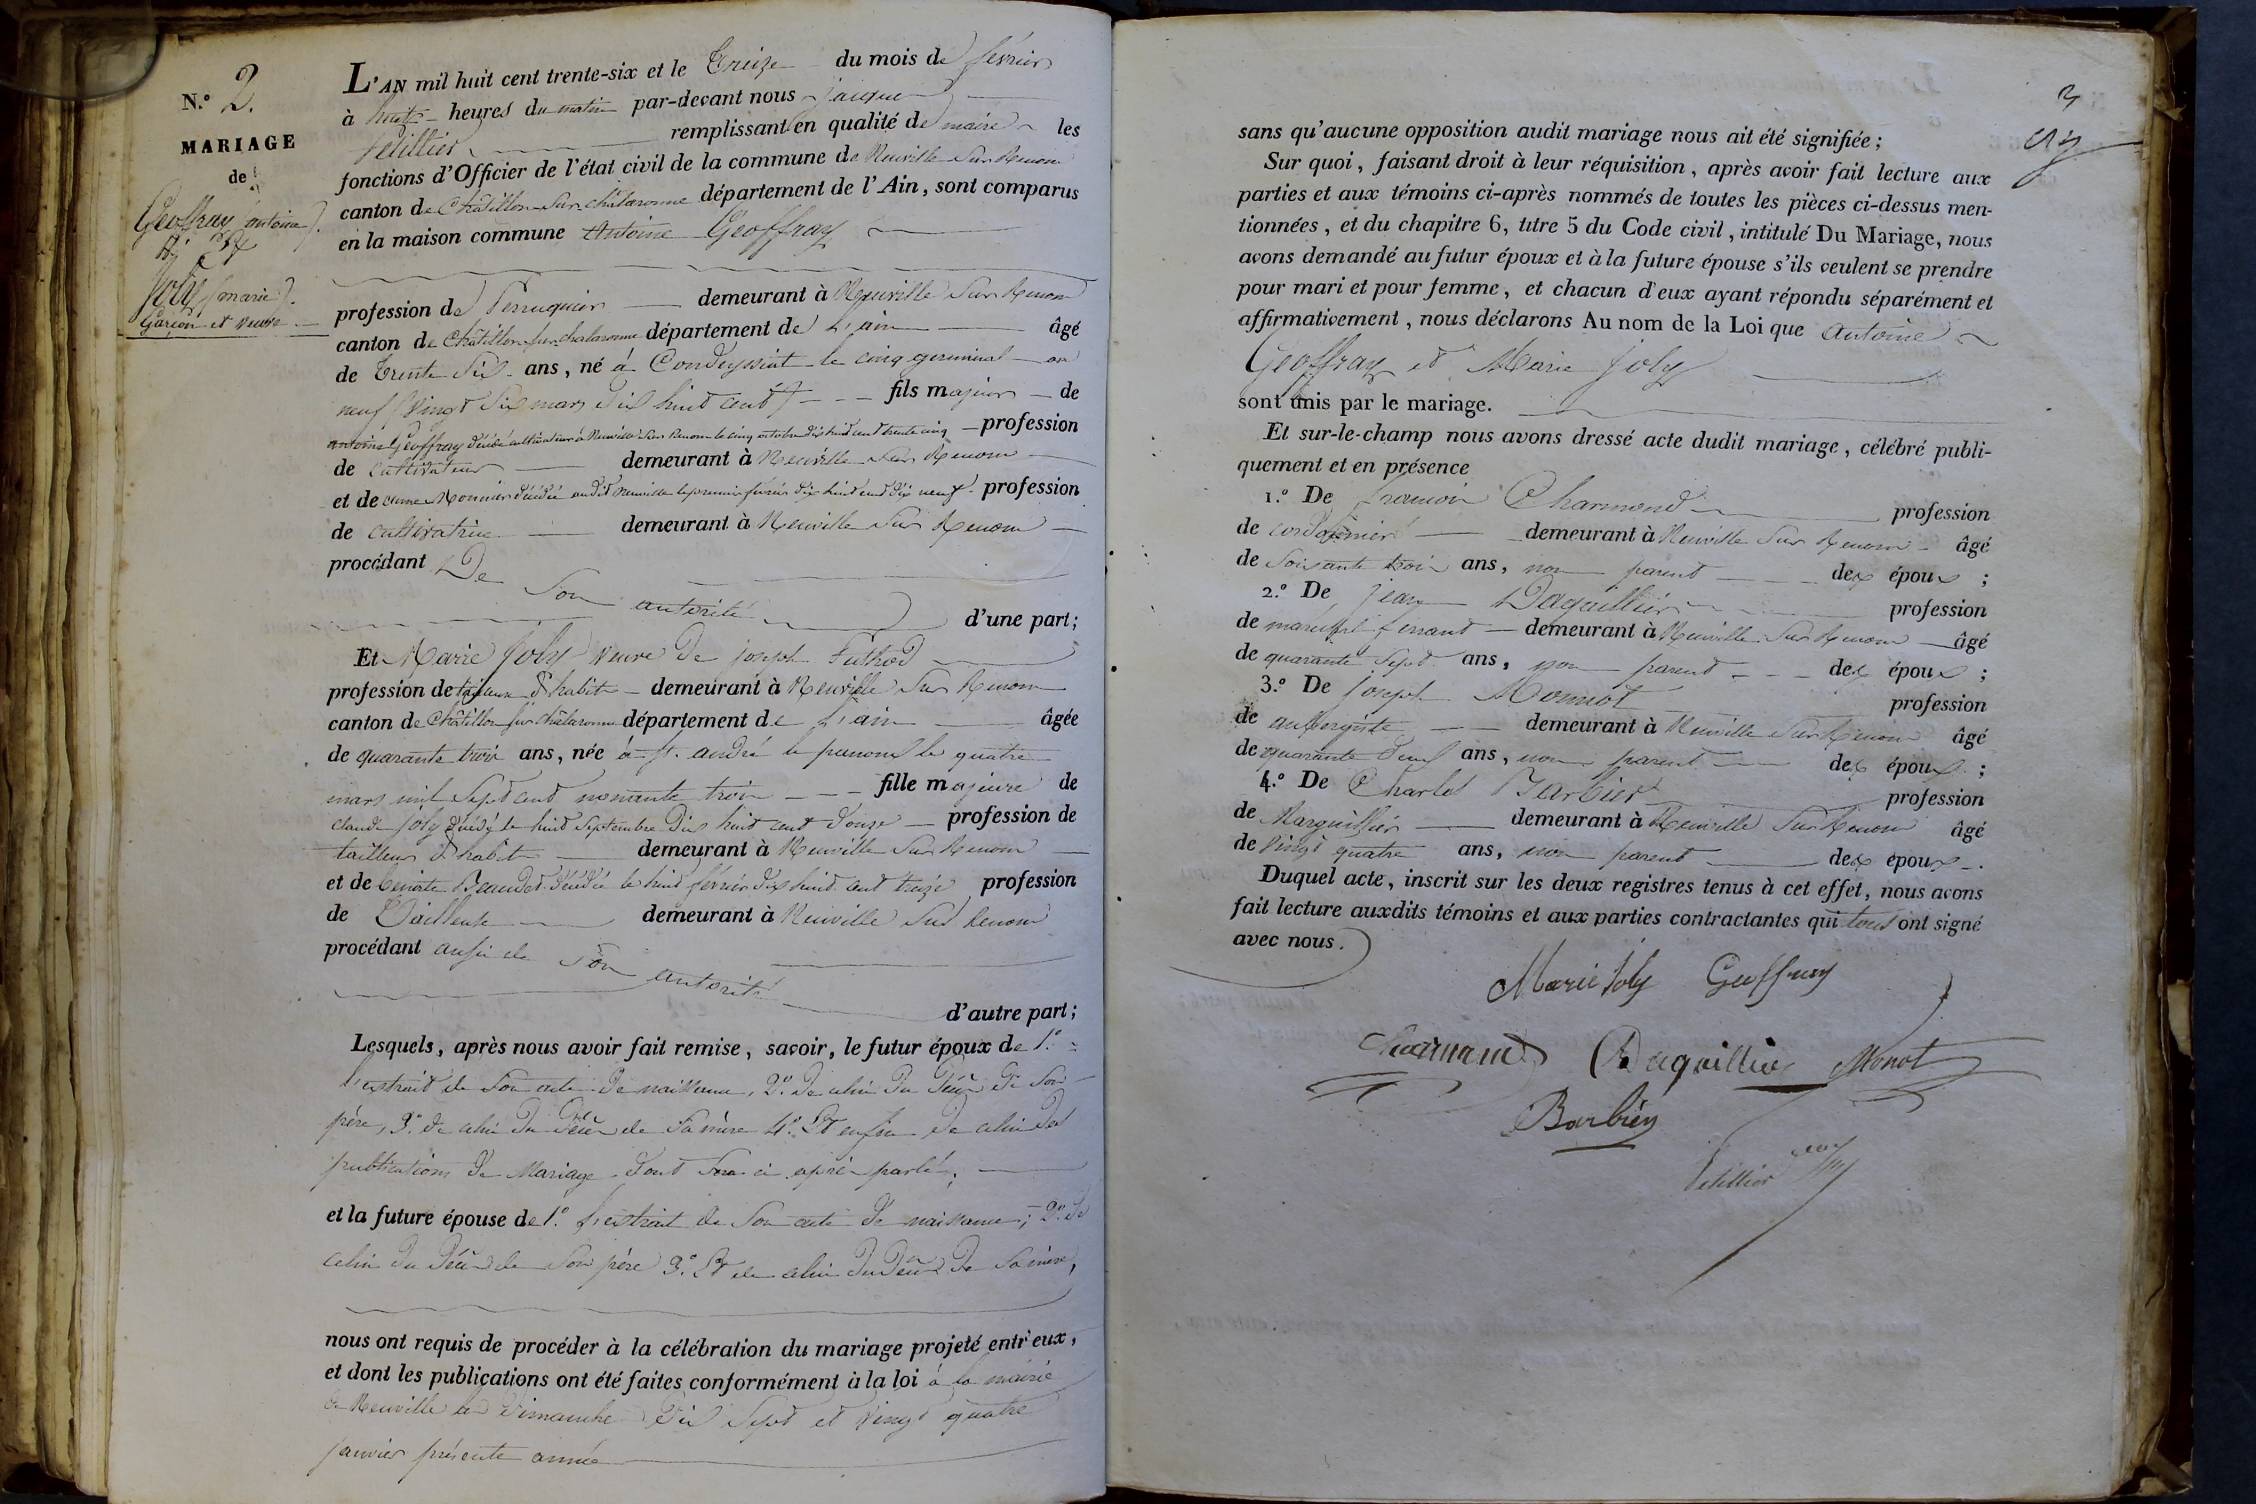 N.° 2.
MARIAGE
de
Geoffray (antoine).
et
Joly (marie).
Garçon et veuve
L'AN mil huit cent trente-six et le Treize du mois de février
à huit heures du matin par-devant nous jacque
Petillier remplissant en qualité de maire les
fonctions d'Officier de l'état civil de la commune de Neuville sur Renom
canton de Châtillon sur chalaronne département de l'Ain, sont comparus
en la maison commune Antoine Geoffray
profession de Perruquier demeurant à Neuville sur Renom
canton de Châtillon sur chalaronne département de L'ain âgé
de Trente six ans, né à Condeyssiat le cinq germinal an
neuf (vingt six mars dix huit cent) fils majeur de
antoine Geoffray décédé cultivateur à Neuville sur Renom le cinq octobre dix huit cent trente cinq profession
de cultivateur demeurant à Neuville sur Renom
et de Monnier décédée audit Neuville le premier février dix huit cent dix neuf profession
de cultivatrice demeurant à Neuville sur Renom
procédant De
son autorité d'une part;
Et Marie Joly veuve de joseph
profession de tailleuse d'habits demeurant à Neuville sur Renom
canton de Châtillon sur chalaronne département de L'ain âgée
de quarante trois ans, née à st. andré le panoux le quatre
mars mil sept cent nonante trois fille majeure de
claude joly décédé le huit septembre dix huit cent douze profession de
tailleur d'habits demeurant à Neuville sur Renom
et de benoite Beaudet décédée le huit février dix huit cent treize profession
de Tailleuse demeurant à Neuville sur Renom
procédant aussi de son
autorité
d'autre part;
Lesquels, après nous avoir fait remise, savoir, le futur époux de 1°.
l'extrait de son acte de naissance, 2°. de celui du décès de son
père, 3°. de celui du décès de sa mère 4°. Et enfin de celui des
publications de Mariage dont sera ci après parlé;
et la future épouse de 1°. l'extrait de son acte de naissance; 2°. de
celui du décès de son père 3°. Et de celui du décès de sa mère,
nous ont requis de procéder à la célébration du mariage projeté entr'eux,
et dont les publications ont été faites conformément à la loi à la mairie
de Neuville les dimanche dix sept et vingt quatre
janvier présente année
3
sans qu'aucune opposition audit mariage nous ait été signifiée;
Sur quoi, faisant droit à leur réquisition, après avoir fait lecture aux
parties et aux témoins ci-après nommés de toutes les pièces ci-dessus men-
tionnées, et du chapitre 6, titre 5 du Code civil, intitulé Du Mariage, nous
avons demandé au futur époux et à la future épouse s'ils veulent se prendre
pour mari et pour femme, et chacun d'eux ayant répondu séparément et
affirmativement, nous déclarons Au nom de la Loi que Antoine
Geoffray et Marie Joly
sont unis par le mariage.
Et sur-le-champ nous avons dressé acte dudit mariage, célébré publi-
quement et en présence
1.° De françois Charmond profession
de cordonnier demeurant à Neuville sur Renom âgé
de soixante trois ans, non parent des époux;
2.° De jean Daguillier profession
de maréchal ferrant demeurant à Neuville sur Renom âgé
de quarante sept ans, non parent des époux;
3.° De joseph Monnot profession
de aubergiste demeurant à Neuville sur Renom âgé
de quarante deux ans, non parent des époux;
4.° De Charles Barbier profession
de Marguillier demeurant à Neuville sur Renom âgé
de vingt quatre ans, non parent des époux.
Duquel acte, inscrit sur les deux registres tenus à cet effet, nous avons
fait lecture auxdits témoins et aux parties contractantes qui tous ont signé
avec nous.
Marie Joly Geoffray
Charmand Daguillier Monot
Barbier
Petillier